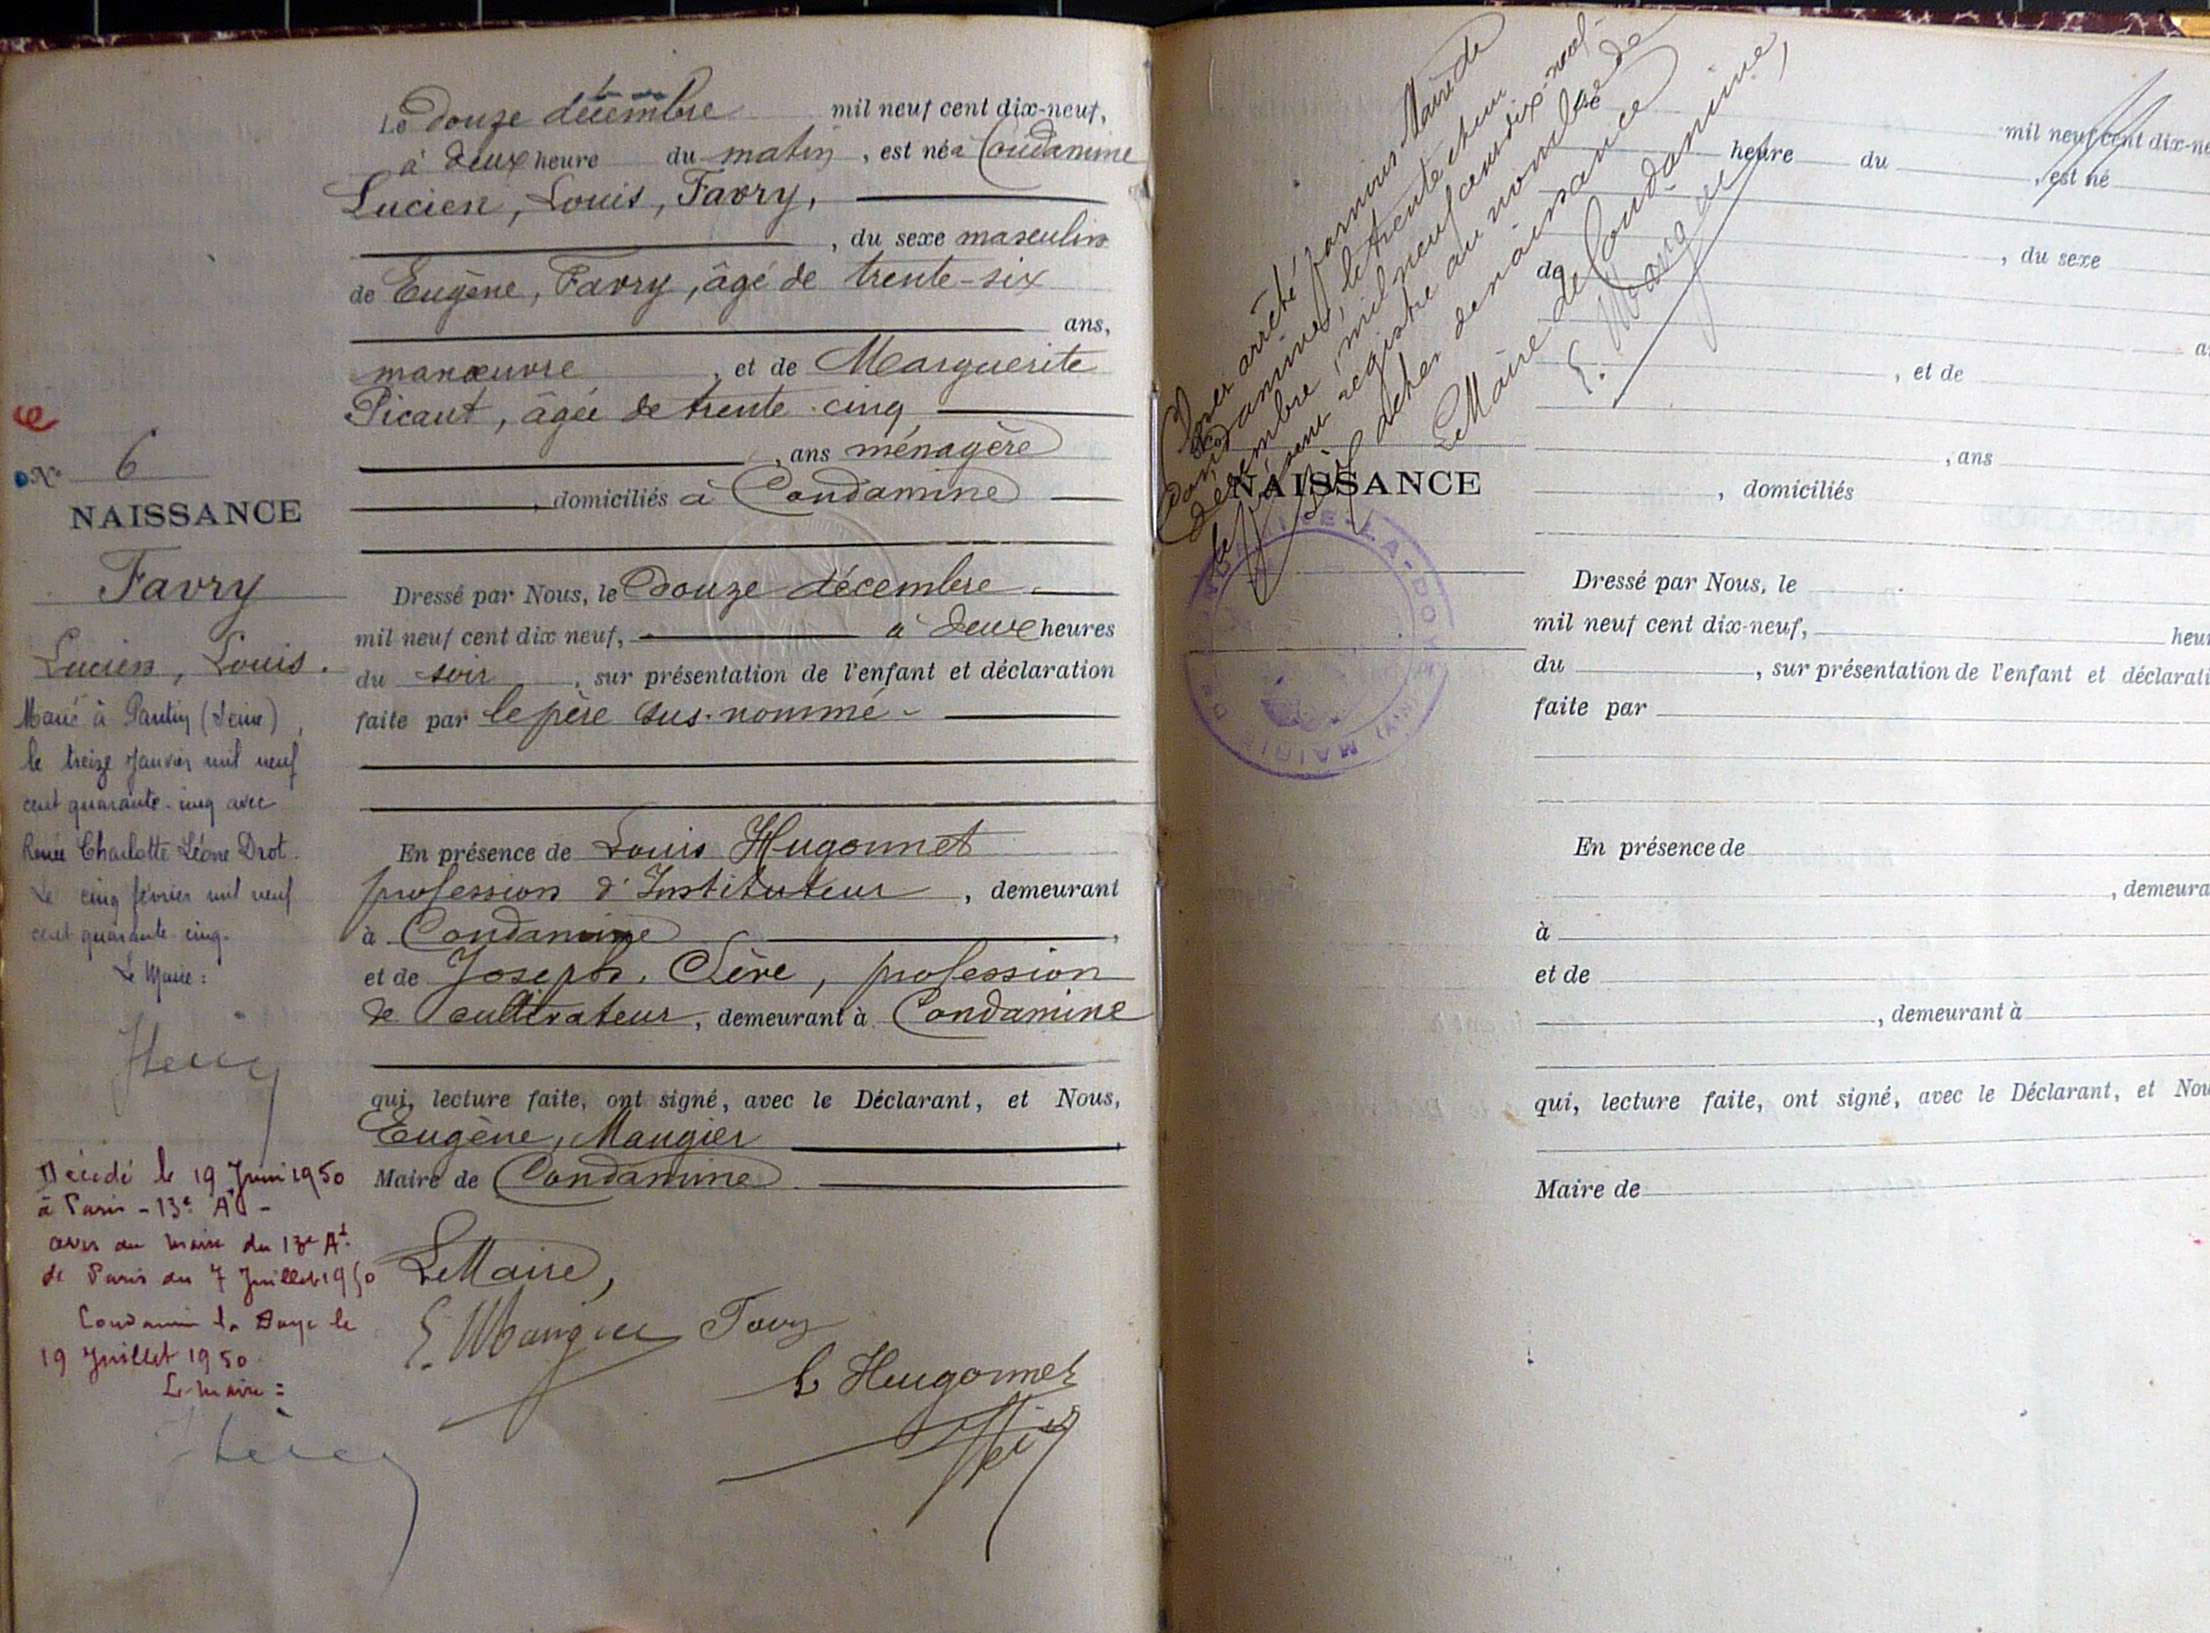 Le douze décembre mil neuf cent dix-neuf,
à deux heure du matin, est né à Condamine
Lucien, Louis, Favry,
, du sexe masculin
de Eugène, Favry, âgé de trente-six
ans,
manœuvre, et de Marguerite
Picaut, âgée de trente-cinq
, ans ménagère
, domiciliés à Condamine
Dressé par Nous, le douze décembre
mil neuf cent dix neuf, à deux heures
du soir, sur présentation de l'enfant et déclaration
faite par le père sus-nommé
En présence de Louis Hugonnet
profession d'Instituteur, demeurant
à Condamine,
et de Joseph, Sève, profession
de cultivateur, demeurant à Condamine
qui, lecture faite, ont signé, avec le Déclarant, et Nous,
Eugène, Maugier,
Maire de Condamine
Le Maire,
E. Maugier Favry
L Hugonnet
No 6
NAISSANCE
Favry
Lucien, Louis.
Marié à Pantin (Seine),
le treize Janvier mil neuf
cent quarante-cinq avec
Renée Charlotte Léone Drot.
Le cinq février mil neuf
cent quarante-cinq.
Le Maire :
Décédé le 19 Juin 1950
à Paris - 13e At -
avis du maire du 13e At
de Paris du 7 Juillet 1950
Condamine la Doye le
19 Juillet 1950
Le Maire :
arrêté par nous Maire de
Condamine, le trente et un
décembre mil neuf cent dix-neuf
le présent registre au nombre de
six actes de naissance
Le Maire de Condamine,
E. Maugier
NAISSANCE
MAIRIE DE LA-DOYE (AIN)
Le mil neuf cent dix-ne
heure du, est né
, du sexe
de
a
, et de
, ans
, domiciliés
Dressé par Nous, le
mil neuf cent dix-neuf, heur
du, sur présentation de l'enfant et déclarati
faite par
En présence de
, demeura
à
et de
, demeurant à
qui, lecture faite, ont signé, avec le Déclarant, et Nou
Maire de